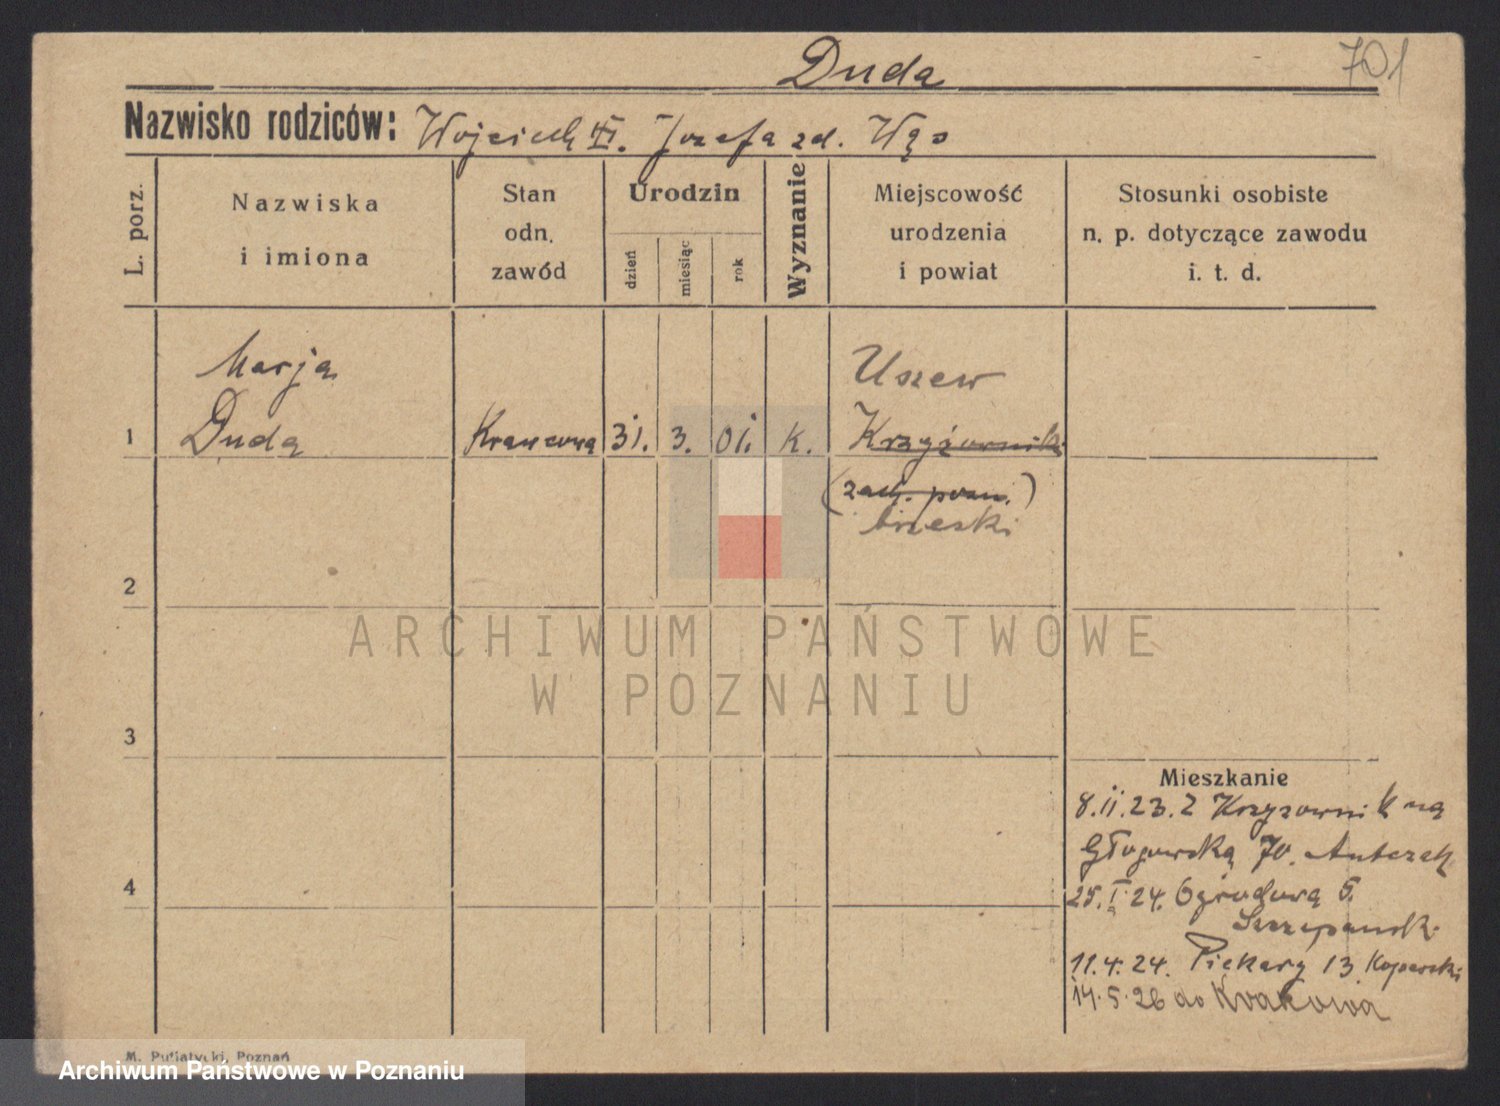 Duda
701
Nazwisko rodziców: Wojciech III. Jozefa zd. Wąs
L. porz.
Nazwiska
i imiona
Stan
odn.
zawód
Urodzin
dzień
miesiąc
rok
Wyznanie
Miejscowość
urodzenia
i powiat
Stosunki osobiste
n. p. dotyczące zawodu
i. t. d.
Marja
Uszew
1 Duda Krawcowa 31. 3. 01. k. Krzyżowniki
(zach. pozn.)
brzeski
2
ARCHIWUM PAŃSTWOWE
W POZNANIU
3
Mieszkanie
8.II.23. Z Krzyzownik na
Głogowską 70. Antczak
4
25.I.24. Ogrodową 5.
Szczepansk.
11.4.24. Piekary 13
14.5.26 do Krakowa
M. Putiatycki, Poznań
Archiwum Państwowe w Poznaniu